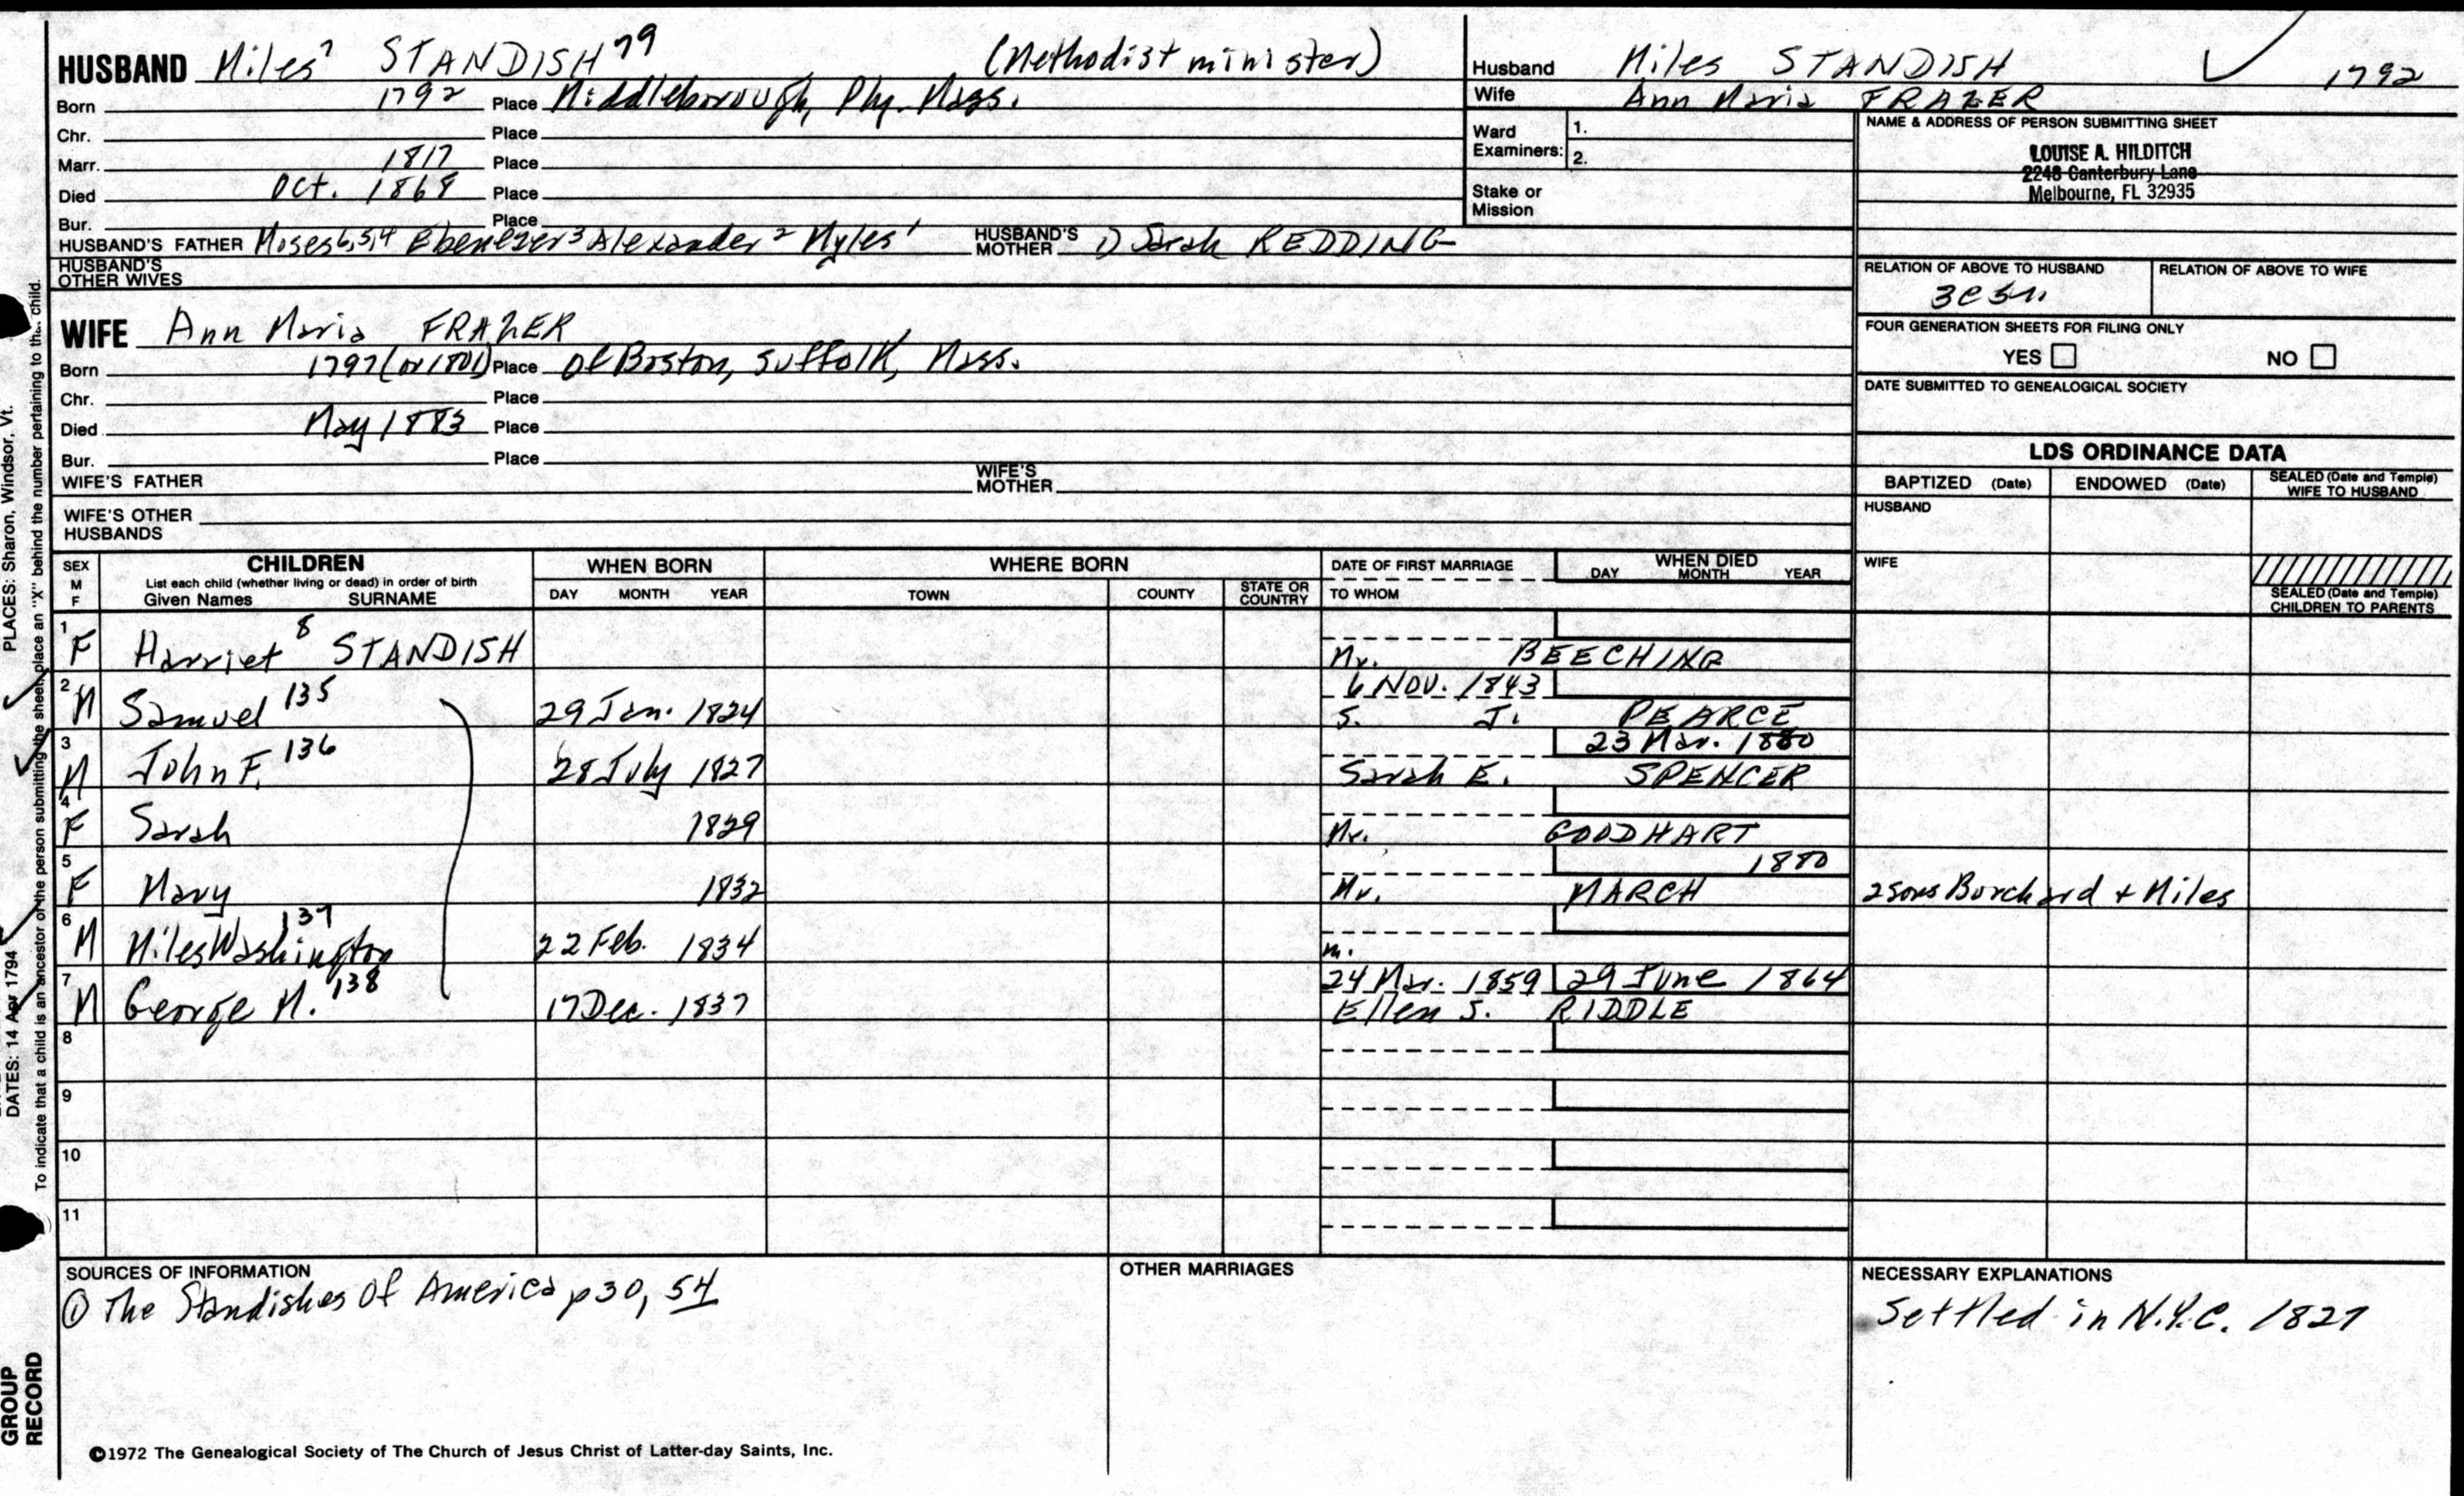 HUSBAND Miles⁷ STANDISH⁷⁹ (Methodist minister)
Born 1792 Place Middleborough, Ply. Mass.
Chr. Place
Marr. 1817 Place
Died Oct. 1868 Place
Bur. Place
HUSBAND'S FATHER Moses⁶,⁵,⁴ Ebenezer³ Alexander² Myles¹ HUSBAND'S MOTHER 1) Sarah REDDING
HUSBAND'S OTHER WIVES
Husband Miles STANDISH 1792
Wife Ann Maria FRAZER
Ward Examiners: 1.
2.
Stake or Mission
NAME & ADDRESS OF PERSON SUBMITTING SHEET
LOUISE A. HILDITCH
2248 Canterbury Lane
Melbourne, FL 32935
RELATION OF ABOVE TO HUSBAND RELATION OF ABOVE TO WIFE
3c5r.
FOUR GENERATION SHEETS FOR FILING ONLY
YES NO
DATE SUBMITTED TO GENEALOGICAL SOCIETY
WIFE Ann Maria FRAZER
Born 1797 (or 1801) Place of Boston, Suffolk, Mass.
Chr. Place
Died May 1883 Place
Bur. Place
WIFE'S FATHER WIFE'S MOTHER
WIFE'S OTHER HUSBANDS
LDS ORDINANCE DATA
BAPTIZED (Date) ENDOWED (Date) SEALED (Date and Temple) WIFE TO HUSBAND
HUSBAND
WIFE
SEALED (Date and Temple) CHILDREN TO PARENTS
SEX M F
CHILDREN
List each child (whether living or dead) in order of birth
Given Names SURNAME
WHEN BORN
DAY MONTH YEAR
WHERE BORN
TOWN COUNTY STATE OR COUNTRY
DATE OF FIRST MARRIAGE
TO WHOM
WHEN DIED
DAY MONTH YEAR
1 F Harriet⁸ STANDISH Mr. BEECHING
2 M Samuel 135 29 Jan. 1824 6 Nov. 1843 S. J. PEARCE
3 M John F. 136 28 July 1827 23 Mar. 1880 Sarah E. SPENCER
4 F Sarah 1829 Mr. GOODHART
5 F Mary 1832 1880 Mr. MARCH 2 sons Borchard + Miles
6 M Miles Washington 137 22 Feb. 1834 m.
7 M George M. 138 17 Dec. 1837 24 Mar. 1859 29 June 1864 Ellen S. RIDDLE
8
9
10
11
SOURCES OF INFORMATION
① The Standishes of America p 30, 54
OTHER MARRIAGES
NECESSARY EXPLANATIONS
Settled in N.Y.C. 1827
©1972 The Genealogical Society of The Church of Jesus Christ of Latter-day Saints, Inc.
PLACES: Sharon, Windsor, Vt.
DATES: 14 Apr 1794
To indicate that a child is an ancestor of the person submitting the sheet, place an "X" behind the number pertaining to that child.
GROUP RECORD